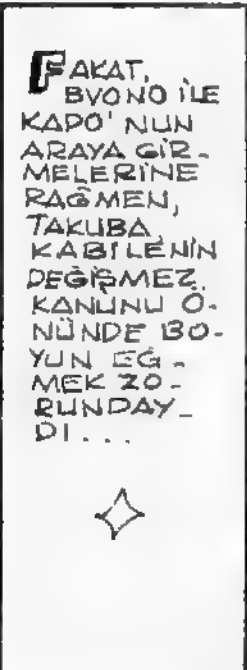 FAKAT,
BVONO İLE
KAPO' NUN
ARAYA GİR-
MELERİNE
RAĞMEN,
TAKUBA
KABİLENİN
DEĞİŞMEZ
KANUNU Ö-
NÜNDE BO-
YUN EĞ-
MEK ZO-
RUNDAY-
DI...